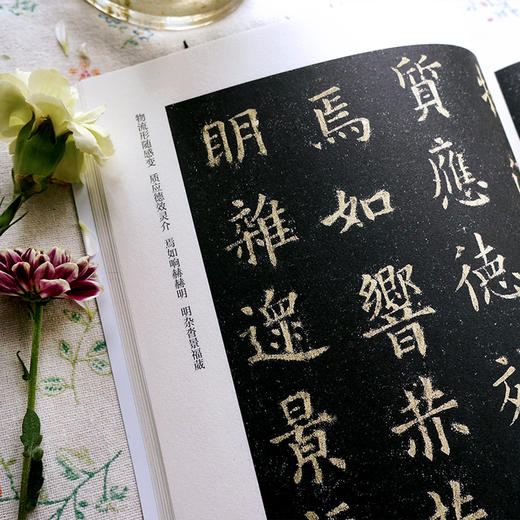 質應德效
焉如響赫赫
明雜遝景
物流形随感变 质应德效灵介 焉如响赫赫明 明杂沓景福葳